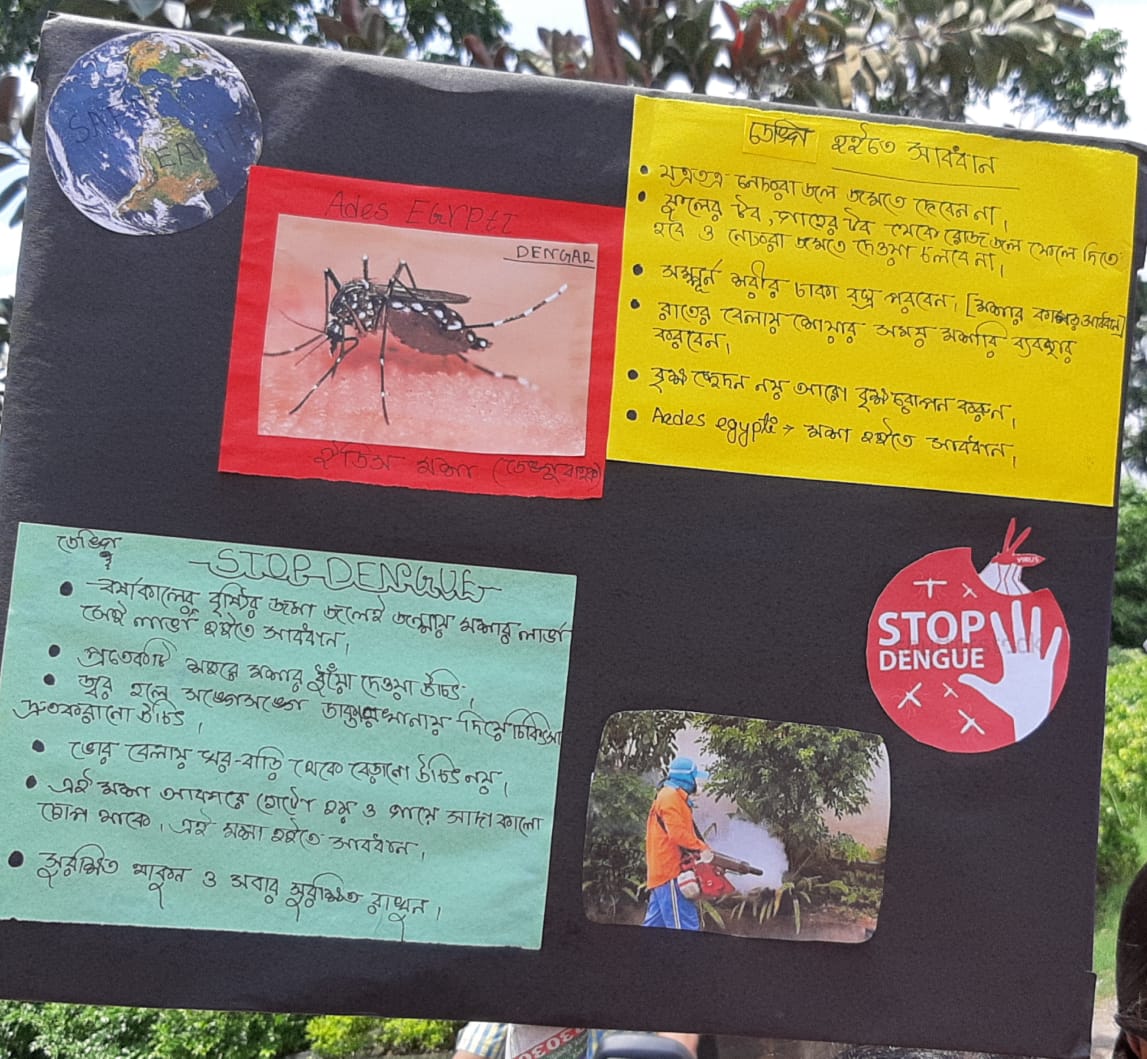 SAVE
EARTH
Ades EGYPtI
DENGAR
ইডিস মশা (ডেঙ্গুবাহক)
ডেঙ্গি হইতে সাবধান
• যত্রতত্র নোংরা জলে জমতে দেবেন না।
• ফুলের টব, গাছের টব থেকে রোজ জল ফেলে দিতে
হবে ও নোংরা জমতে দেওয়া চলবে না।
• সম্পূর্ন শরীর ঢাকা বস্ত্র পরবেন। [মশার কামড় সাবধান]
• রাতের বেলায় শোয়ার সময় মশারি ব্যবহার
করবেন।
• বৃক্ষ ছেদন নয় আরো বৃক্ষরোপন করুন।
• Aedes egypti → মশা হইতে সাবধান।
ডেঙ্গি
STOP DENGUE
• বর্ষাকালের বৃষ্টির জমা জলেই জন্মায় মশার লার্ভা
সেই লার্ভা হইতে সাবধান।
• প্রত্যেকটি শহরে মশার ধুঁয়ো দেওয়া উচিৎ।
• জ্বর হলে সঙ্গেসঙ্গে ডাক্তারখানায় গিয়ে চিকিৎসা
দ্রুত করানো উচিৎ।
• ভোর বেলায় ঘর-বাড়ি থেকে বেড়ানো উচিৎ নয়।
• এই মশা আকারে ছোটো হয় ও গায়ে সাদা কালো
ছোপ থাকে। এই মশা হইতে সাবধান।
• সুরক্ষিত থাকুন ও সবার সুরক্ষিত রাখুন।
VIRUS
STOP
DENGUE